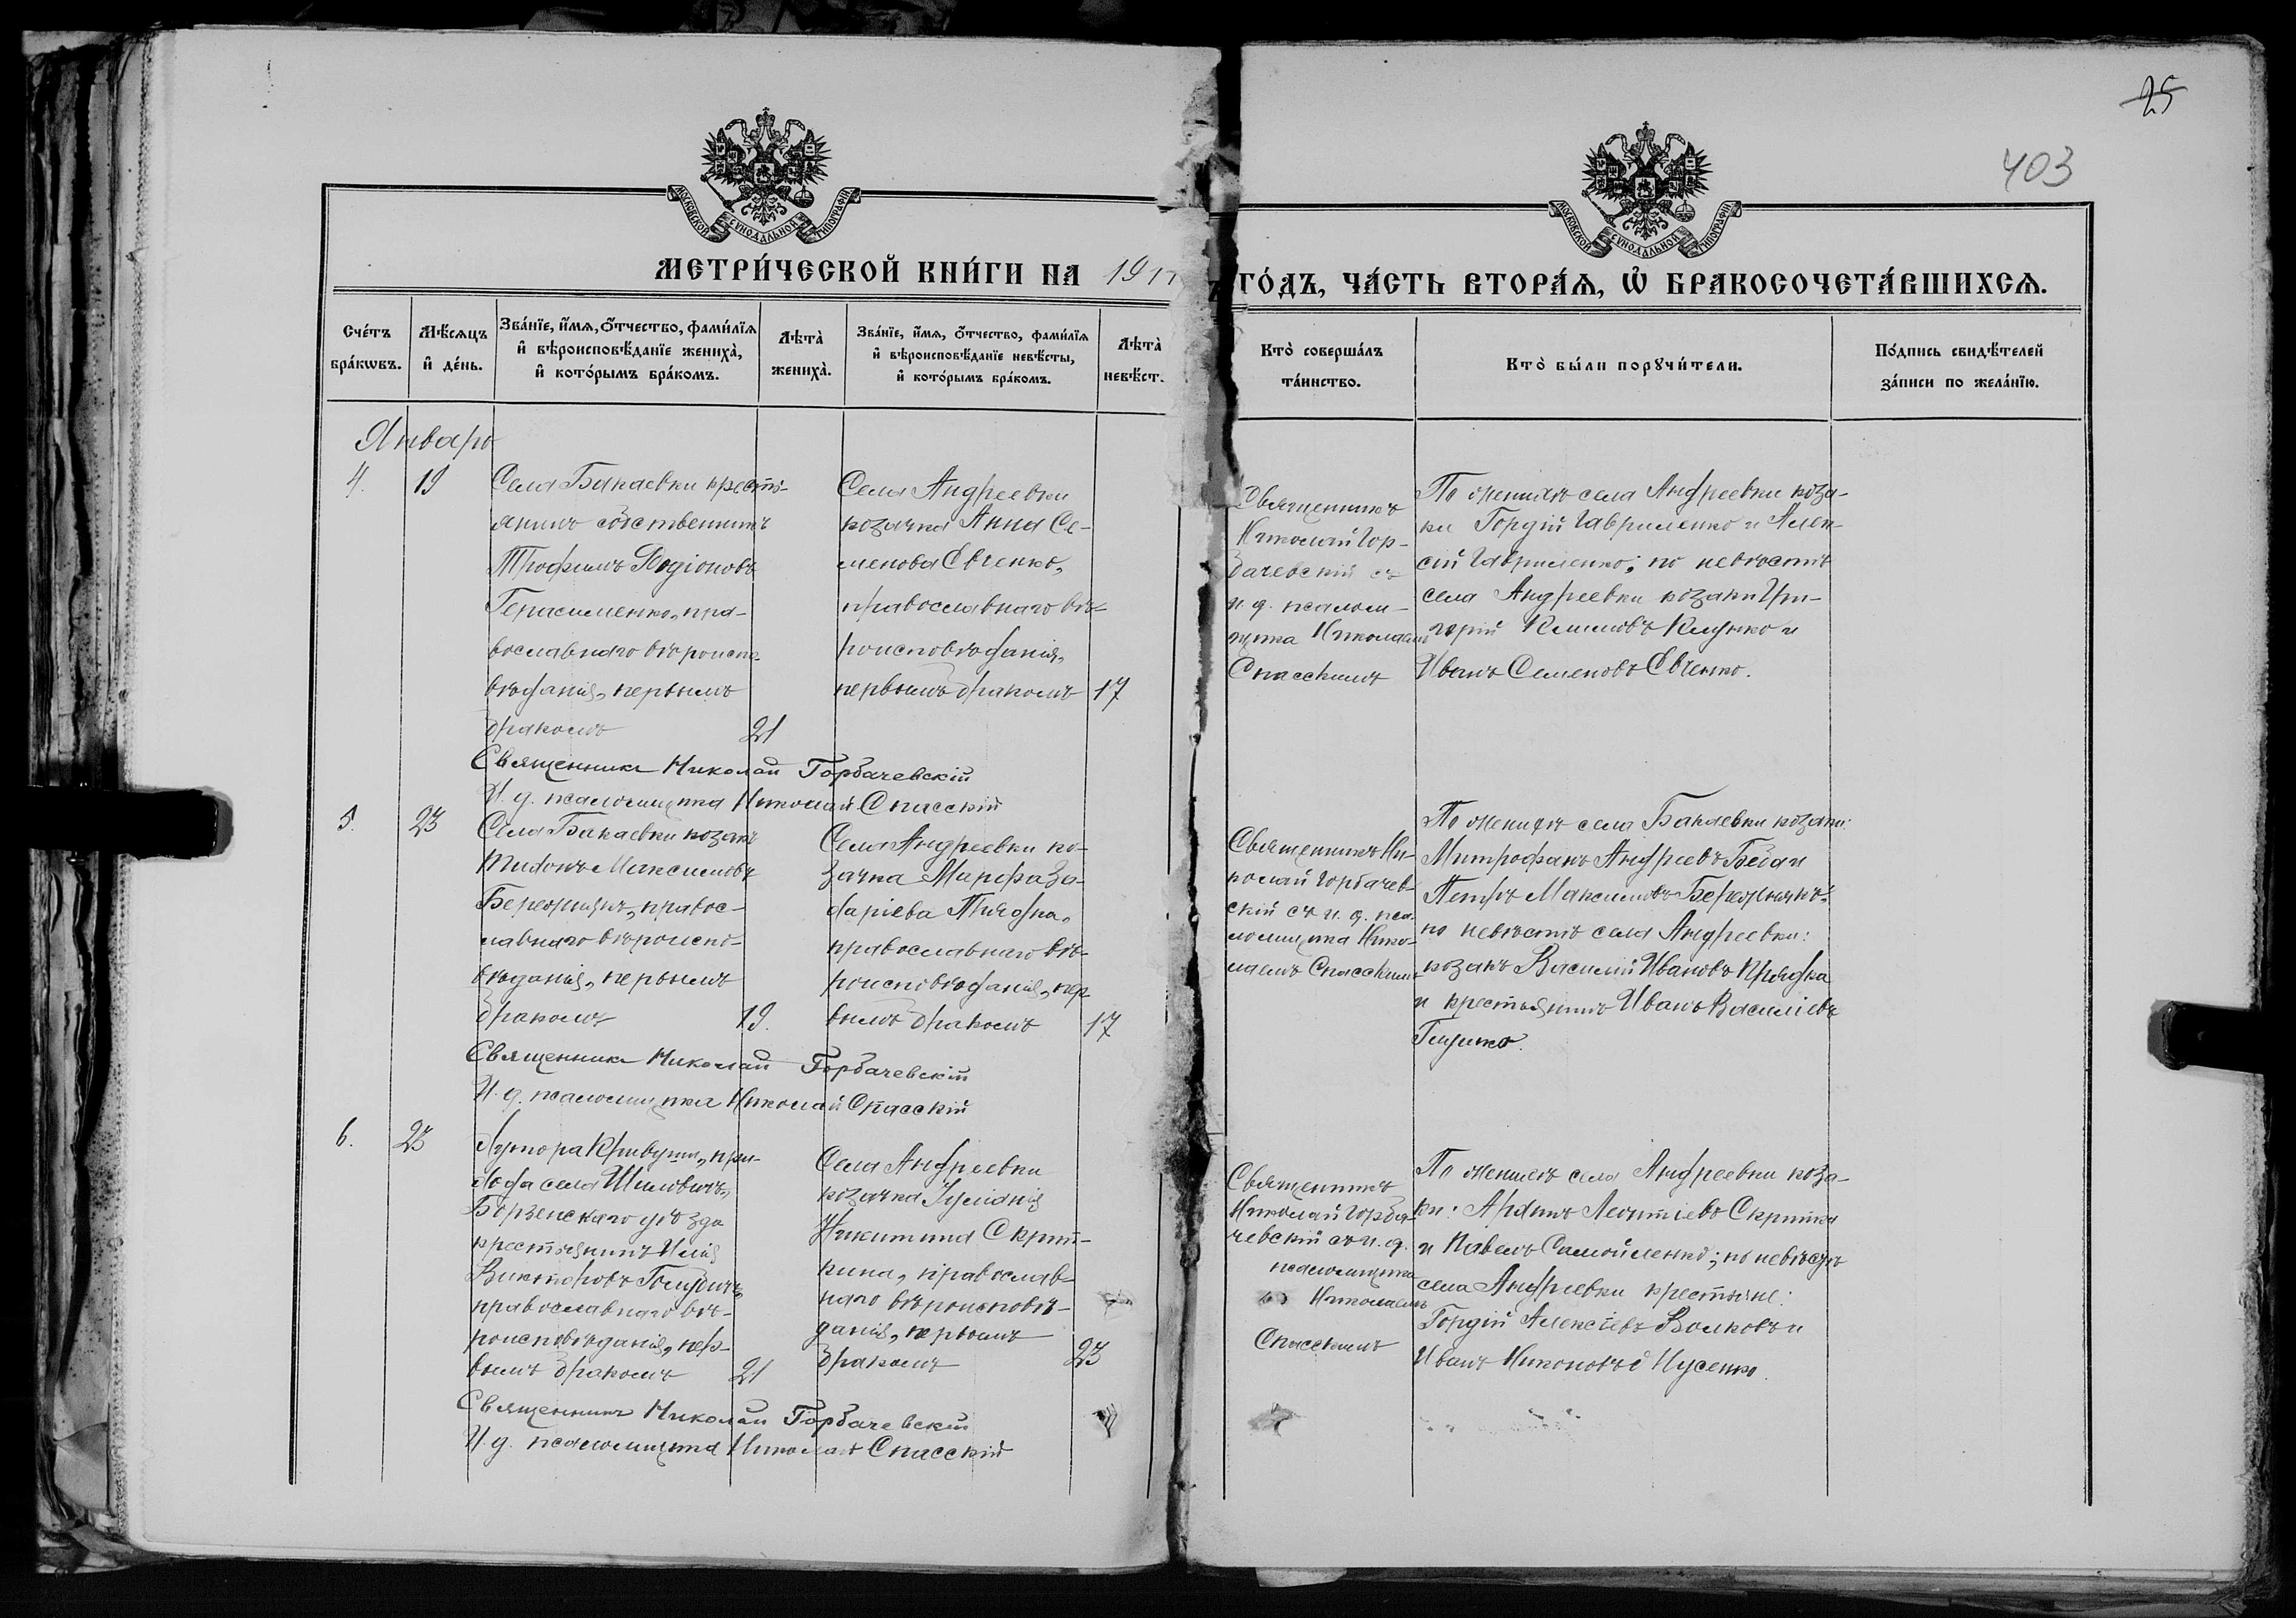 25
403
МОСКОВСКОЙ СѴНОДАЛЬНОЙ ТИПОГРАФІИ
МОСКОВСКОЙ СѴНОДАЛЬНОЙ ТИПОГРАФІИ
МЕТРИ́ЧЕСКОЙ КНИ́ГИ НА 191
ГО́ДЪ, ЧА́СТЬ ВТОРА́Ѧ, Ѽ БРАКОСОЧЕТА́ВШИХСѦ.
Сче́тъ бра́кѡвъ.
Мѣ́сѧцъ и҆ де́нь.
Зва́нїе, и҆́мѧ, ѻ҆́тчество, фами́лїѧ и҆ вѣроисповѣ́данїе жениха̀, и҆ кото́рымъ бра́комъ.
Лѣта̀ жениха̀.
Зва́нїе, и҆́мѧ, ѻ҆́тчество, фами́лїѧ и҆ вѣроисповѣ́данїе невѣ́сты, и҆ кото́рымъ бра́комъ.
Лѣта̀ невѣ́ст.
Кто̀ соверша́лъ та́инство.
Кто̀ бы́ли порꙋчи́тели.
По́дпись свидѣ́телей за́писи по жела́нїю.
Январь
4.
19
Села Бакаевки кресть-
янинъ собственникъ
Трофимъ Родіоновъ
Герасименко, пра-
вославнаго вѣроиспо-
вѣданія, первымъ
бракомъ
21
Села Андреевки
козачка Анна Се-
менова Евченко,
православнаго вѣ-
роисповѣданія,
первымъ бракомъ
17
Священникъ
Николай Гор-
бачевскій съ
и. д. псалом-
щика Николаемъ
Спасскимъ
По женихѣ села Андреевки коза-
ки Гордій Гавриленко и Алек-
сій Гавриленко; по невѣстѣ
села Андреевки козаки Гри-
горій Климовъ и
Иванъ Семеновъ Евченко.
Священникъ Николай Горбачевскій
И. д. псаломщика Николай Спасскій
5.
23
Села Бакаевки козакъ
Тихонъ Максимовъ
Бережнякъ, правос-
лавнаго вѣроиспо-
вѣданія, первымъ
бракомъ
19.
Села Андреевки ко-
зачка Марфа За-
харіева Прядка,
православнаго вѣ-
роисповѣданія, пер-
вымъ бракомъ
17
Священникъ Ни-
колай Горбачев-
скій съ и. д. пса-
ломщика Нико-
лаемъ Спасскимъ
По женихѣ села Бакаевки козаки:
Митрофанъ Андреевъ и
Петръ Максимовъ Бережнякъ;
по невѣстѣ села Андреевки:
козакъ Василій Ивановъ Прядка
и крестьянинъ Иванъ Василіевъ
Священникъ Николай Горбачевскій
И. д. псаломщика Николай Спасскій
6.
23
Хутора Кривуши, при-
хода села Шиловичъ,
Борзенскаго уѣзда
крестьянинъ Илія
Викторовъ Голубъ,
православнаго вѣ-
роисповѣданія, пер-
вымъ бракомъ
21
Села Андреевки
козачка Іуліанія
Никитина Скрип-
кина, православ-
наго вѣроисповѣ-
данія, первымъ
бракомъ
23
Священникъ
Николай Горба-
чевскій съ и. д.
псаломщика
Николаемъ
Спасскимъ
По женихѣ села Андреевки коза-
ки: Леонтіевъ Скрипка
и Павелъ Самойленко; по невѣстѣ
села Андреевки крестьяне:
Гордій Алексіевъ Волковъ и
Иванъ Никоновъ Мусенко.
Священникъ Николай Горбачевскій
И. д. псаломщика Николай Спасскій